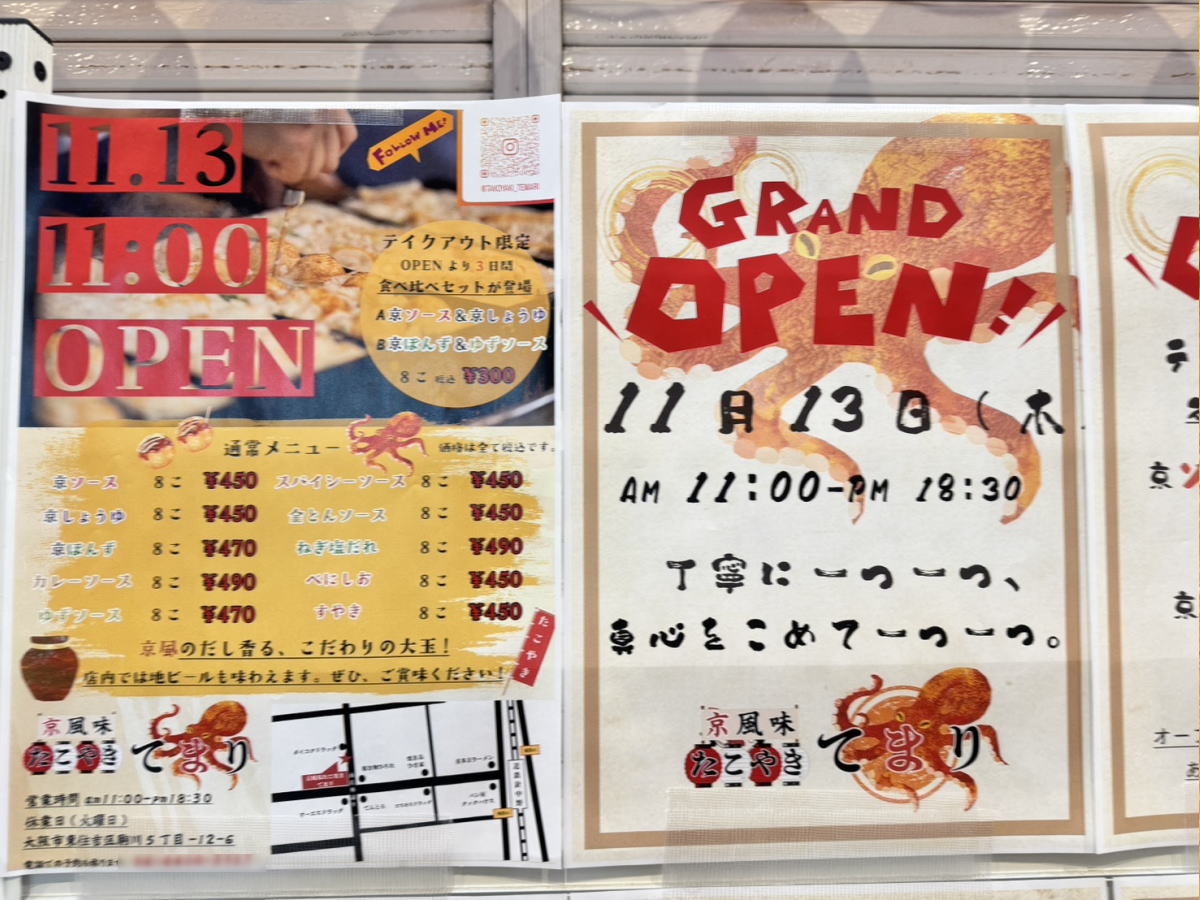 11.13
11:00
OPEN
FOLLOW ME!
@TAKOYAKI_TEMARI
テイクアウト限定
OPENより3日間
食べ比べセットが登場
A京ソース&京しょうゆ
B京ぽんず&ゆずソース
8こ 税込 ¥300
通常メニュー 価格は全て税込です。
京ソース 8こ ¥450 スパイシーソース 8こ ¥450
京しょうゆ 8こ ¥450 金とんソース 8こ ¥450
京ぽんず 8こ ¥470 ねぎ塩だれ 8こ ¥490
カレーソース 8こ ¥490 べにしお 8こ ¥450
ゆずソース 8こ ¥470 すやき 8こ ¥450
京風のだし香る、こだわりの大玉!
店内では地ビールも味わえます。ぜひ、ご賞味ください!
たこやき
京風味
たこやき
てまり
営業時間 am11:00-pm18:30
休業日(火曜日)
大阪市東住吉区駒川5丁目-12-6
GRAND
OPEN!
11月13日(木
AM 11:00-PM 18:30
丁寧に一つ一つ、
真心をこめて一つ一つ。
京風味
たこやき
てまり
テ
京ソ
京
オー